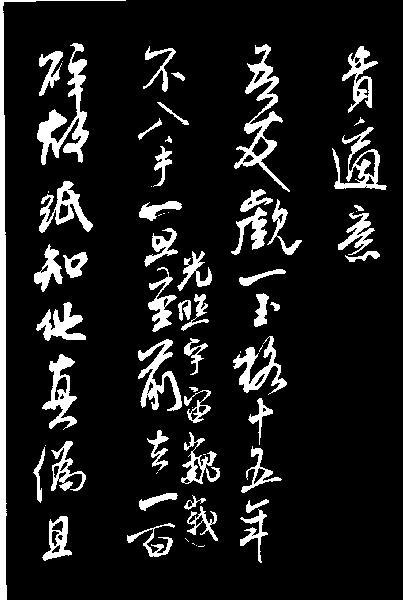 貴適意
吾友覷一玉格十五年
不入手一旦至前去一百
光照宇宙巍峩
碎故紙知他真偽且